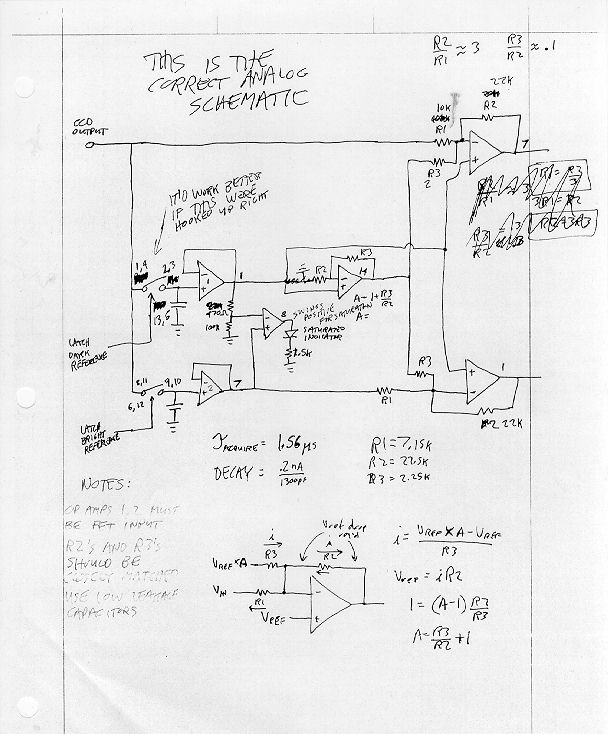 THIS IS THE
CORRECT ANALOG
SCHEMATIC
R2/R1 ≈ 3 R3/R2 ≈ .1
CCD
OUTPUT
10K
R1
22K
R2
7
R3
2
IT'D WORK BETTER
IF THIS WERE
HOOKED UP RIGHT
R3/R2
1,4
2,3
13,5
1
1
R2
R3
14
A = 1+R3/R2
A=
470Ω
100K
8
SWINGS
POSITIVE
FOR SATURATION
SATURATED
INDICATOR
1.5K
LATCH
DARK
REFERENCE
8,11
9,10
6,12
2
7
R1
R3
1
R2 22K
LATCH
BRIGHT
REFERENCE
TACQUIRE = 1.56μs
DECAY = .2nA/1300pF
R1=7.15K
R2=22.5K
R3=2.25K
NOTES:
OP AMPS 1,2 MUST
BE FET INPUT
R2'S AND R3'S
SHOULD BE
MATCHED
USE LOW LEAKAGE
CAPACITORS
Vref drop
i
R3
i
R2
VREF×A
VIN
R1
VREF
i = VREF×A-VREF/R3
Vref = iR2
1 = (A-1) R2/R3
A = R3/R2 + 1